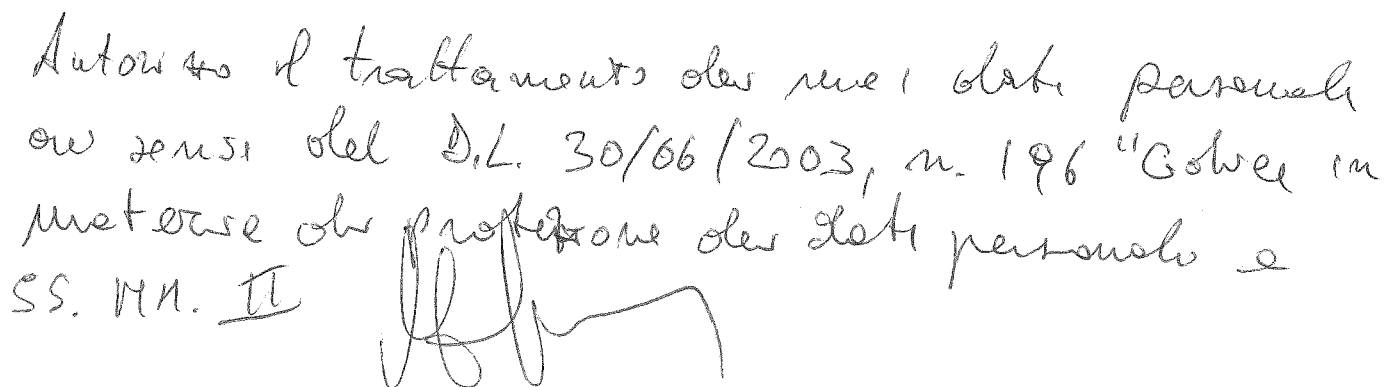 Autorizzo il trattamento dei miei dati personali
ai sensi del D.L. 30/06/2003, n. 196 "Codice in
materia di protezione dei dati personali e
SS. MM. II